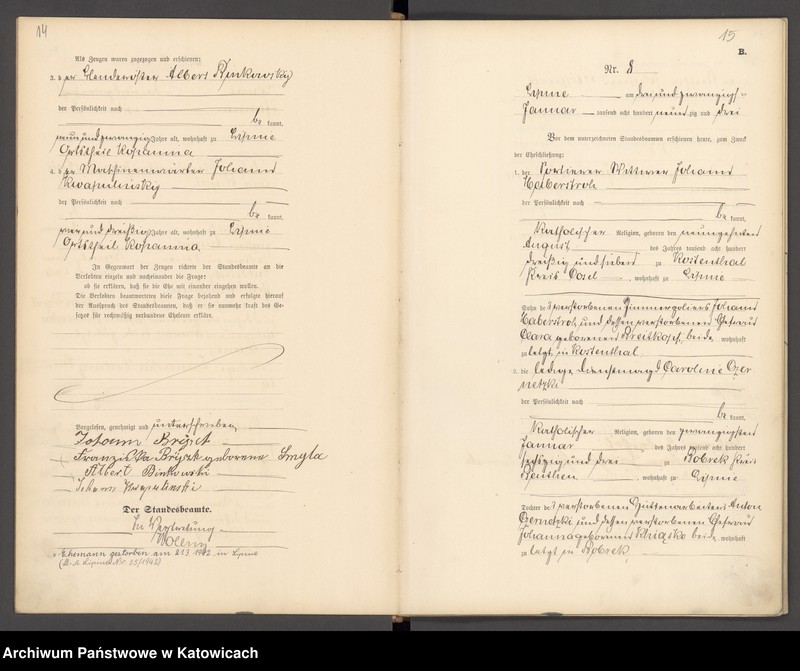 14
Als Zeugen waren zugezogen und erschienen:
3. der Albert Binkowsky
der Persönlichkeit nach
be kannt,
neun und zwanzig Jahre alt, wohnhaft zu Lipine
Ortstheil Kopanina
4. der Maschinenwärter Johann
Kwapulinsky
der Persönlichkeit nach
be kannt,
vier und dreißig Jahre alt, wohnhaft zu Lipine
Ortstheil Kopanina
In Gegenwart der Zeugen richtete der Standesbeamte an die
Verlobten einzeln und nacheinander die Frage:
ob sie erklären, daß sie die Ehe mit einander eingehen wollen.
Die Verlobten beantworteten diese Frage bejahend und erfolgte hierauf
der Ausspruch des Standesbeamten, daß er sie nunmehr kraft des Ge-
setzes für rechtmäßig verbundene Eheleute erkläre.
Vorgelesen, genehmigt und unterschrieben
Johann
Franziska geborene Smyla
Albert Binkowski
Johann Kwapulinski
Der Standesbeamte.
In Vertretung
Woleny
Ehemann gestorben am 21.3 1942 in Lipine
(St.A. Lipine Nr. 55/1942)
15
B.
Nr. 8
Lipine am drei und zwanzigst
Januar tausend acht hundert neun zig und drei
Vor dem unterzeichneten Standesbeamten erschienen heute, zum Zweck
der Eheschließung:
1. der Portierer Wittwer Johann
Haberstroh
der Persönlichkeit nach
be kannt,
Katholischer Religion, geboren den neunzehnten
August des Jahres tausend acht hundert
dreißig und sieben zu Kostenthal
Kreis Cosel, wohnhaft zu Lipine
Sohn des verstorbenen Zimmerpoliers Johann
Haberstroh und dessen verstorbenen Ehefrau
Clara geborenen beide wohnhaft
zuletzt in Kostenthal
2. die ledige Dienstmagd Caroline Czer
netzki
der Persönlichkeit nach
be kannt,
Katholischer Religion, geboren den zwanzigsten
Januar des Jahres tausend acht hundert
fünfzig und drei zu Bobrek Kreis
Beuthen, wohnhaft zu Lipine
Tochter des verstorbenen Hüttenarbeiters Anton
Czernetzki und dessen verstorbenen Ehefrau
Johanna geborenen beide wohnhaft
zuletzt in Bobrek
Archiwum Państwowe w Katowicach